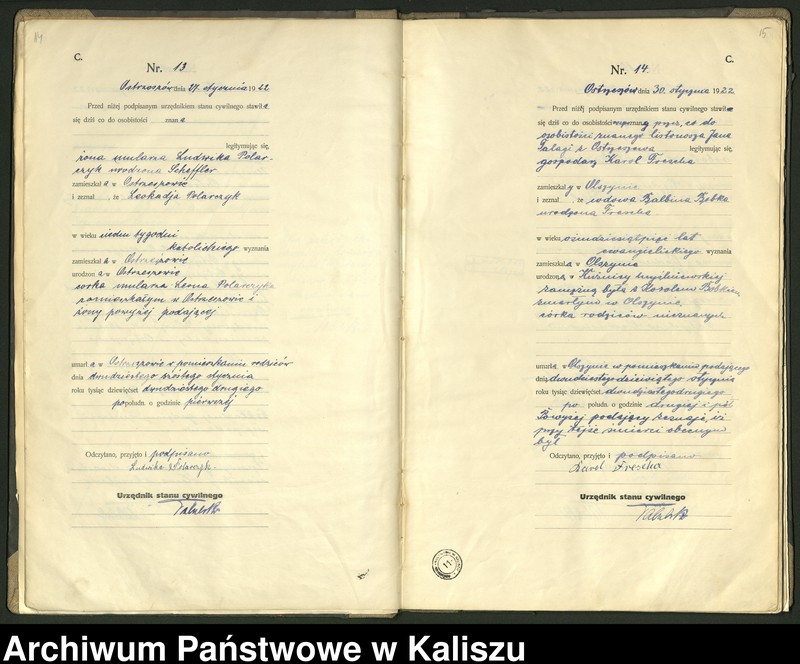 14
C.
Nr. 13
Ostrzeszów dnia 27. stycznia 1922
Przed niżej podpisanym urzędnikiem stanu cywilnego stawiła
się dziś co do osobistości znana
legitymując się,
żona mularza Ludwika Polar-
czyk urodzona Scheffler
zamieszkała w Ostrzeszowie
i zeznał, że Leokadja Polarczyk
w wieku siedm tygodni
katolickiego wyznania
zamieszkała w Ostrzeszowie
urodzona w Ostrzeszowie
córka mularza Leona Polarczyka
zamieszkałym w Ostrzeszowie i
żony powyżej podającej
umarła w Ostrzeszowie w pomieszkaniu rodziców
dnia dwudziestego szóstego stycznia
roku tysiąc dziewięćset dwudziestego drugiego
po połudn. o godzinie pierwszej
Odczytano, przyjęto i podpisano
Ludwika Polarczyk.
Urzędnik stanu cywilnego
15
C.
Nr. 14.
Ostrzeszów dnia 30. stycznia 1922
Przed niżej podpisanym urzędnikiem stanu cywilnego stawił
się dziś co do osobistości przez, co do
osobistości znanego listonosza Jana
z Ostrzeszowa legitymując się,
gospodarz Karol Frescha
zamieszkały w Olszynie
i zeznał, że wdowa Balbina Bebka
urodzona Frescha
w wieku ośmdziesiątpięć lat
ewangielickiego wyznania
zamieszkała w Olszynie
urodzona w Kuźnicy myślniewskiej
zamężną była z Karolem Bebkiem
zmarłym w Olszynie
córka rodziców nieznanych
umarła w Olszynie w pomieszkaniu podającego
dnia dwudziestego dziewiątego stycznia
roku tysiąc dziewięćset dwudziestego drugiego
po połudn. o godzinie drugiej i pół
Powyżej podający zeznaje, iż
przy zejściu śmierci obecnym
był
Odczytano, przyjęto i podpisano
Karol Frescha
Urzędnik stanu cywilnego
Archiwum Państwowe w Kaliszu